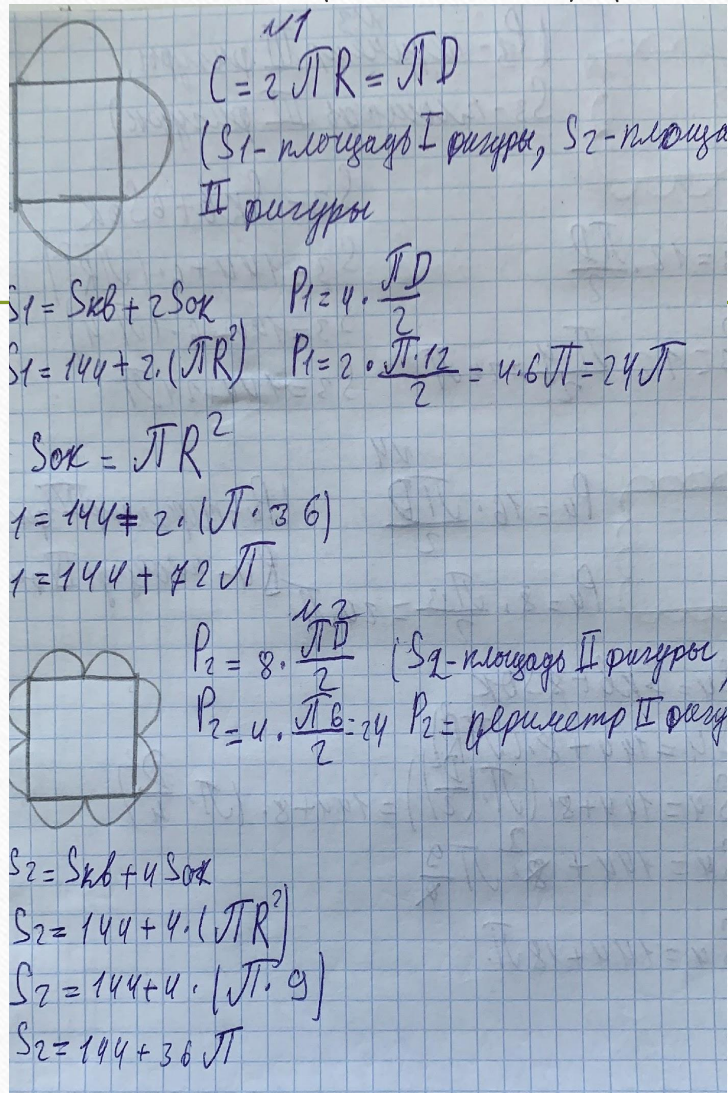 №1
C = 2ПR = ПD
(S1 - площадь I фигуры, S2 - площа
II фигуры
S1 = Sкв + 2Sок P1 = 4 · ПD/2
S1 = 144 + 2 · (ПR²) P1 = 2 · П·12/2 = 4·6П = 24П
Sок = ПR²
1 = 144 + 2 · (П · 36)
1 = 144 + 72П
№2
P2 = 8 · ПD/2 (S2 - площадь II фигуры,
P2 = 4 · П6/2 = 24 P2 = периметр II фигу
S2 = Sкв + 4Sок
S2 = 144 + 4 · (ПR²)
S2 = 144 + 4 · (П · 9)
S2 = 144 + 36П